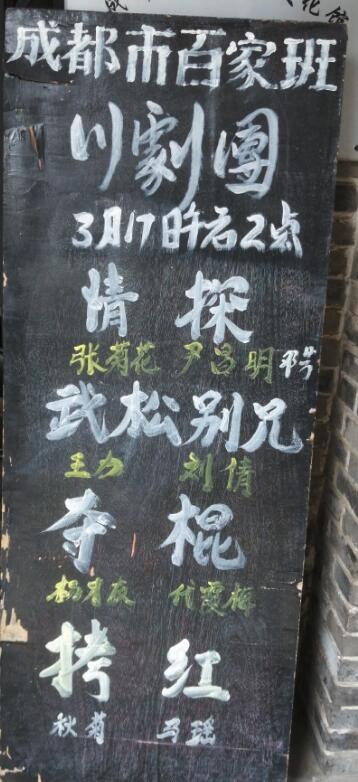 成都市百家班
川劇團
3月17日午后2点
情 探
张菊花 尹吕明
武松别兄
王力 刘倩
夺 棍
代霞辉
拷 红
秋菊 马瑶